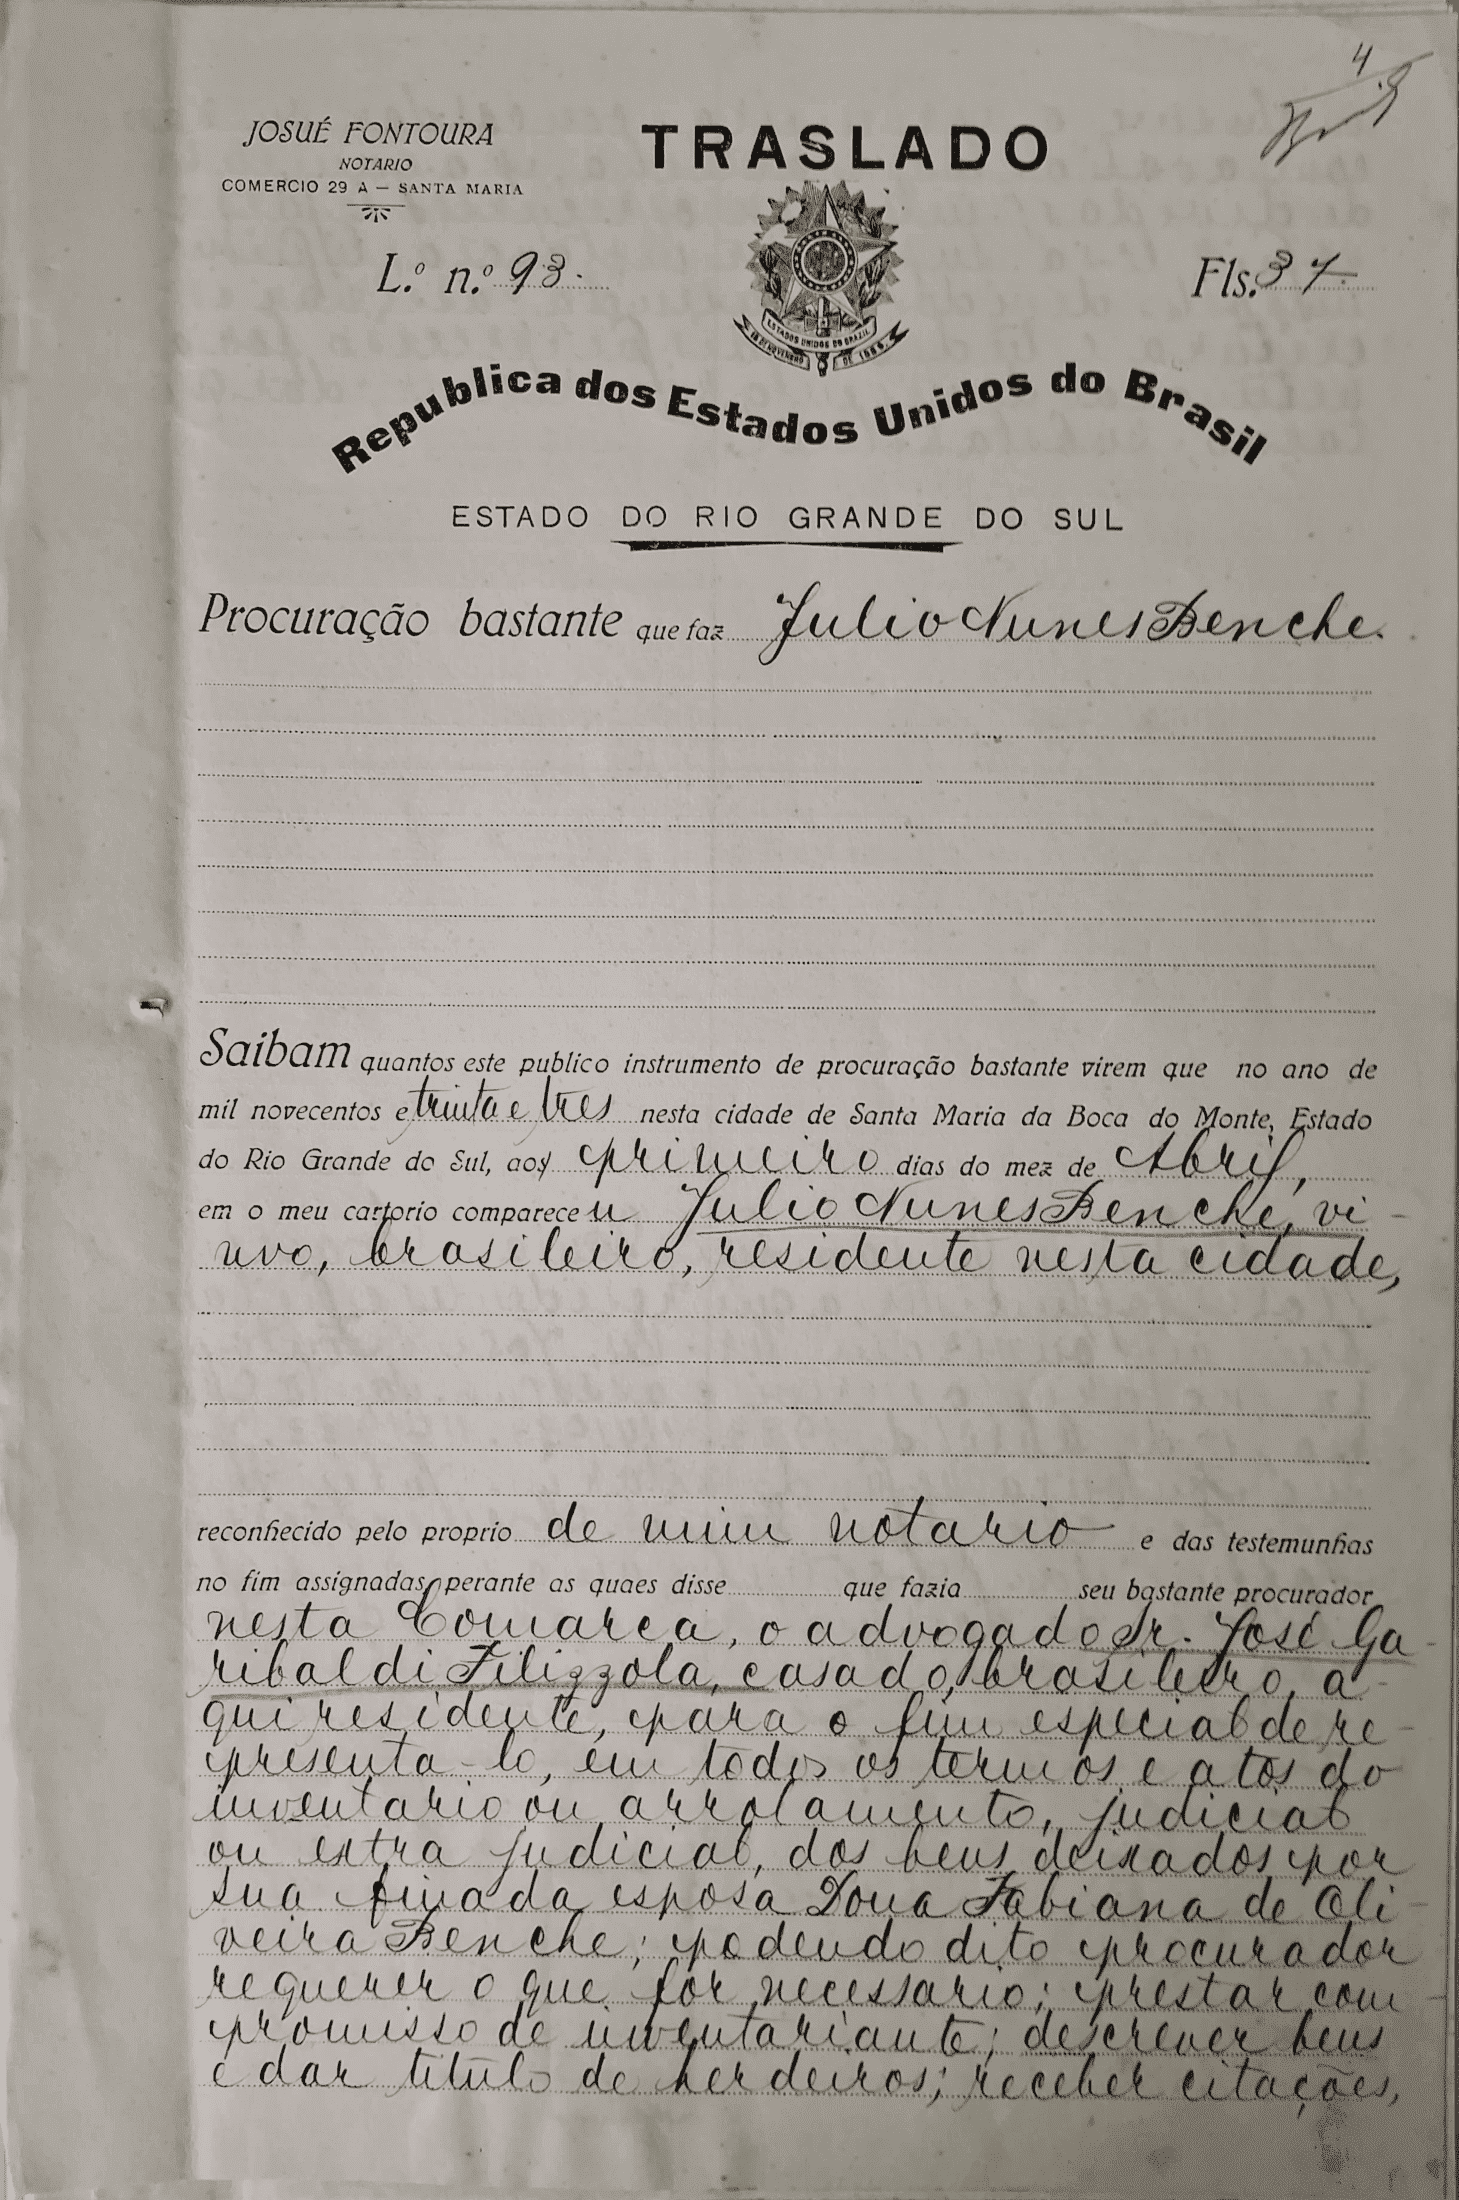 4
JOSUÉ FONTOURA
NOTARIO
COMERCIO 29 A — SANTA MARIA
TRASLADO
L.º n.º 93.
Fls. 37
ESTADOS UNIDOS DO BRAZIL
15 DE NOVEMBRO DE 1889.
Republica dos Estados Unidos do Brasil
ESTADO DO RIO GRANDE DO SUL
Procuração bastante que faz Julio Nunes Benche.
Saibam quantos este publico instrumento de procuração bastante virem que no ano de
mil novecentos e trinta e tres nesta cidade de Santa Maria da Boca do Monte, Estado
do Rio Grande do Sul, aos primeiro dias do mez de Abril,
em o meu cartorio compareceu Julio Nunes Benche, vi-
uvo, brasileiro, residente nesta cidade,
reconhecido pelo proprio de mim notario e das testemunhas
no fim assignadas, perante as quaes disse que fazia seu bastante procurador
nesta Comarca, o advogado Sr. José Ga-
ribaldi Filizzola, casado, brasileiro, a-
qui residente, para o fim especial de re-
presenta-lo, em todos os termos e atos do
inventario ou arrolamento, judicial
ou extra judicial, dos bens deixados por
sua finada esposa Dona Fabiana de Oli-
veira Benche; podendo dito procurador
requerer o que for necessario; prestar com-
promisso de inventariante; descrever bens
e dar titulo de herdeiros; receber citações,